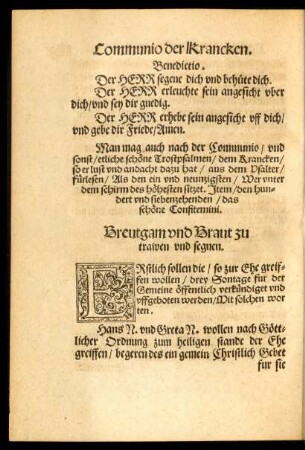 Communio der Krancken.
Benedictio.
Der HERR segene dich vnd behüte dich.
Der HERR erleuchte sein angesicht vber
dich/vnd sey dir gnedig.
Der HERR erhebe sein angesicht vff dich/
vnd gebe dir Friede/Amen.
Man mag auch nach der Communio/ vnd
sonst/etliche schöne Trostpsalmen/dem Krancken/
so er lust vnd andacht dazu hat/ aus dem Psalter/
fürlesen/ Als den ein vnd neunzigsten/ Wer vnter
dem schirm des höhesten sitzet. Item/den hun-
dert vnd siebenzehenden/das
schöne Confitemini.
Breutgam vnd Braut zu
trawen vnd segnen.
ERstlich sollen die/ so zur Ehe greif-
fen wollen/ drey Sontage für der
Gemeine öffentlich verkündiget vnd
vffgeboten werden/Mit solchen wor
ten.
Hans N. vnd Greta N. wollen nach Gött-
licher Ordnung zum heiligen stande der Ehe
greiffen/ begeren des ein gemein Christlich Gebet
fur sie